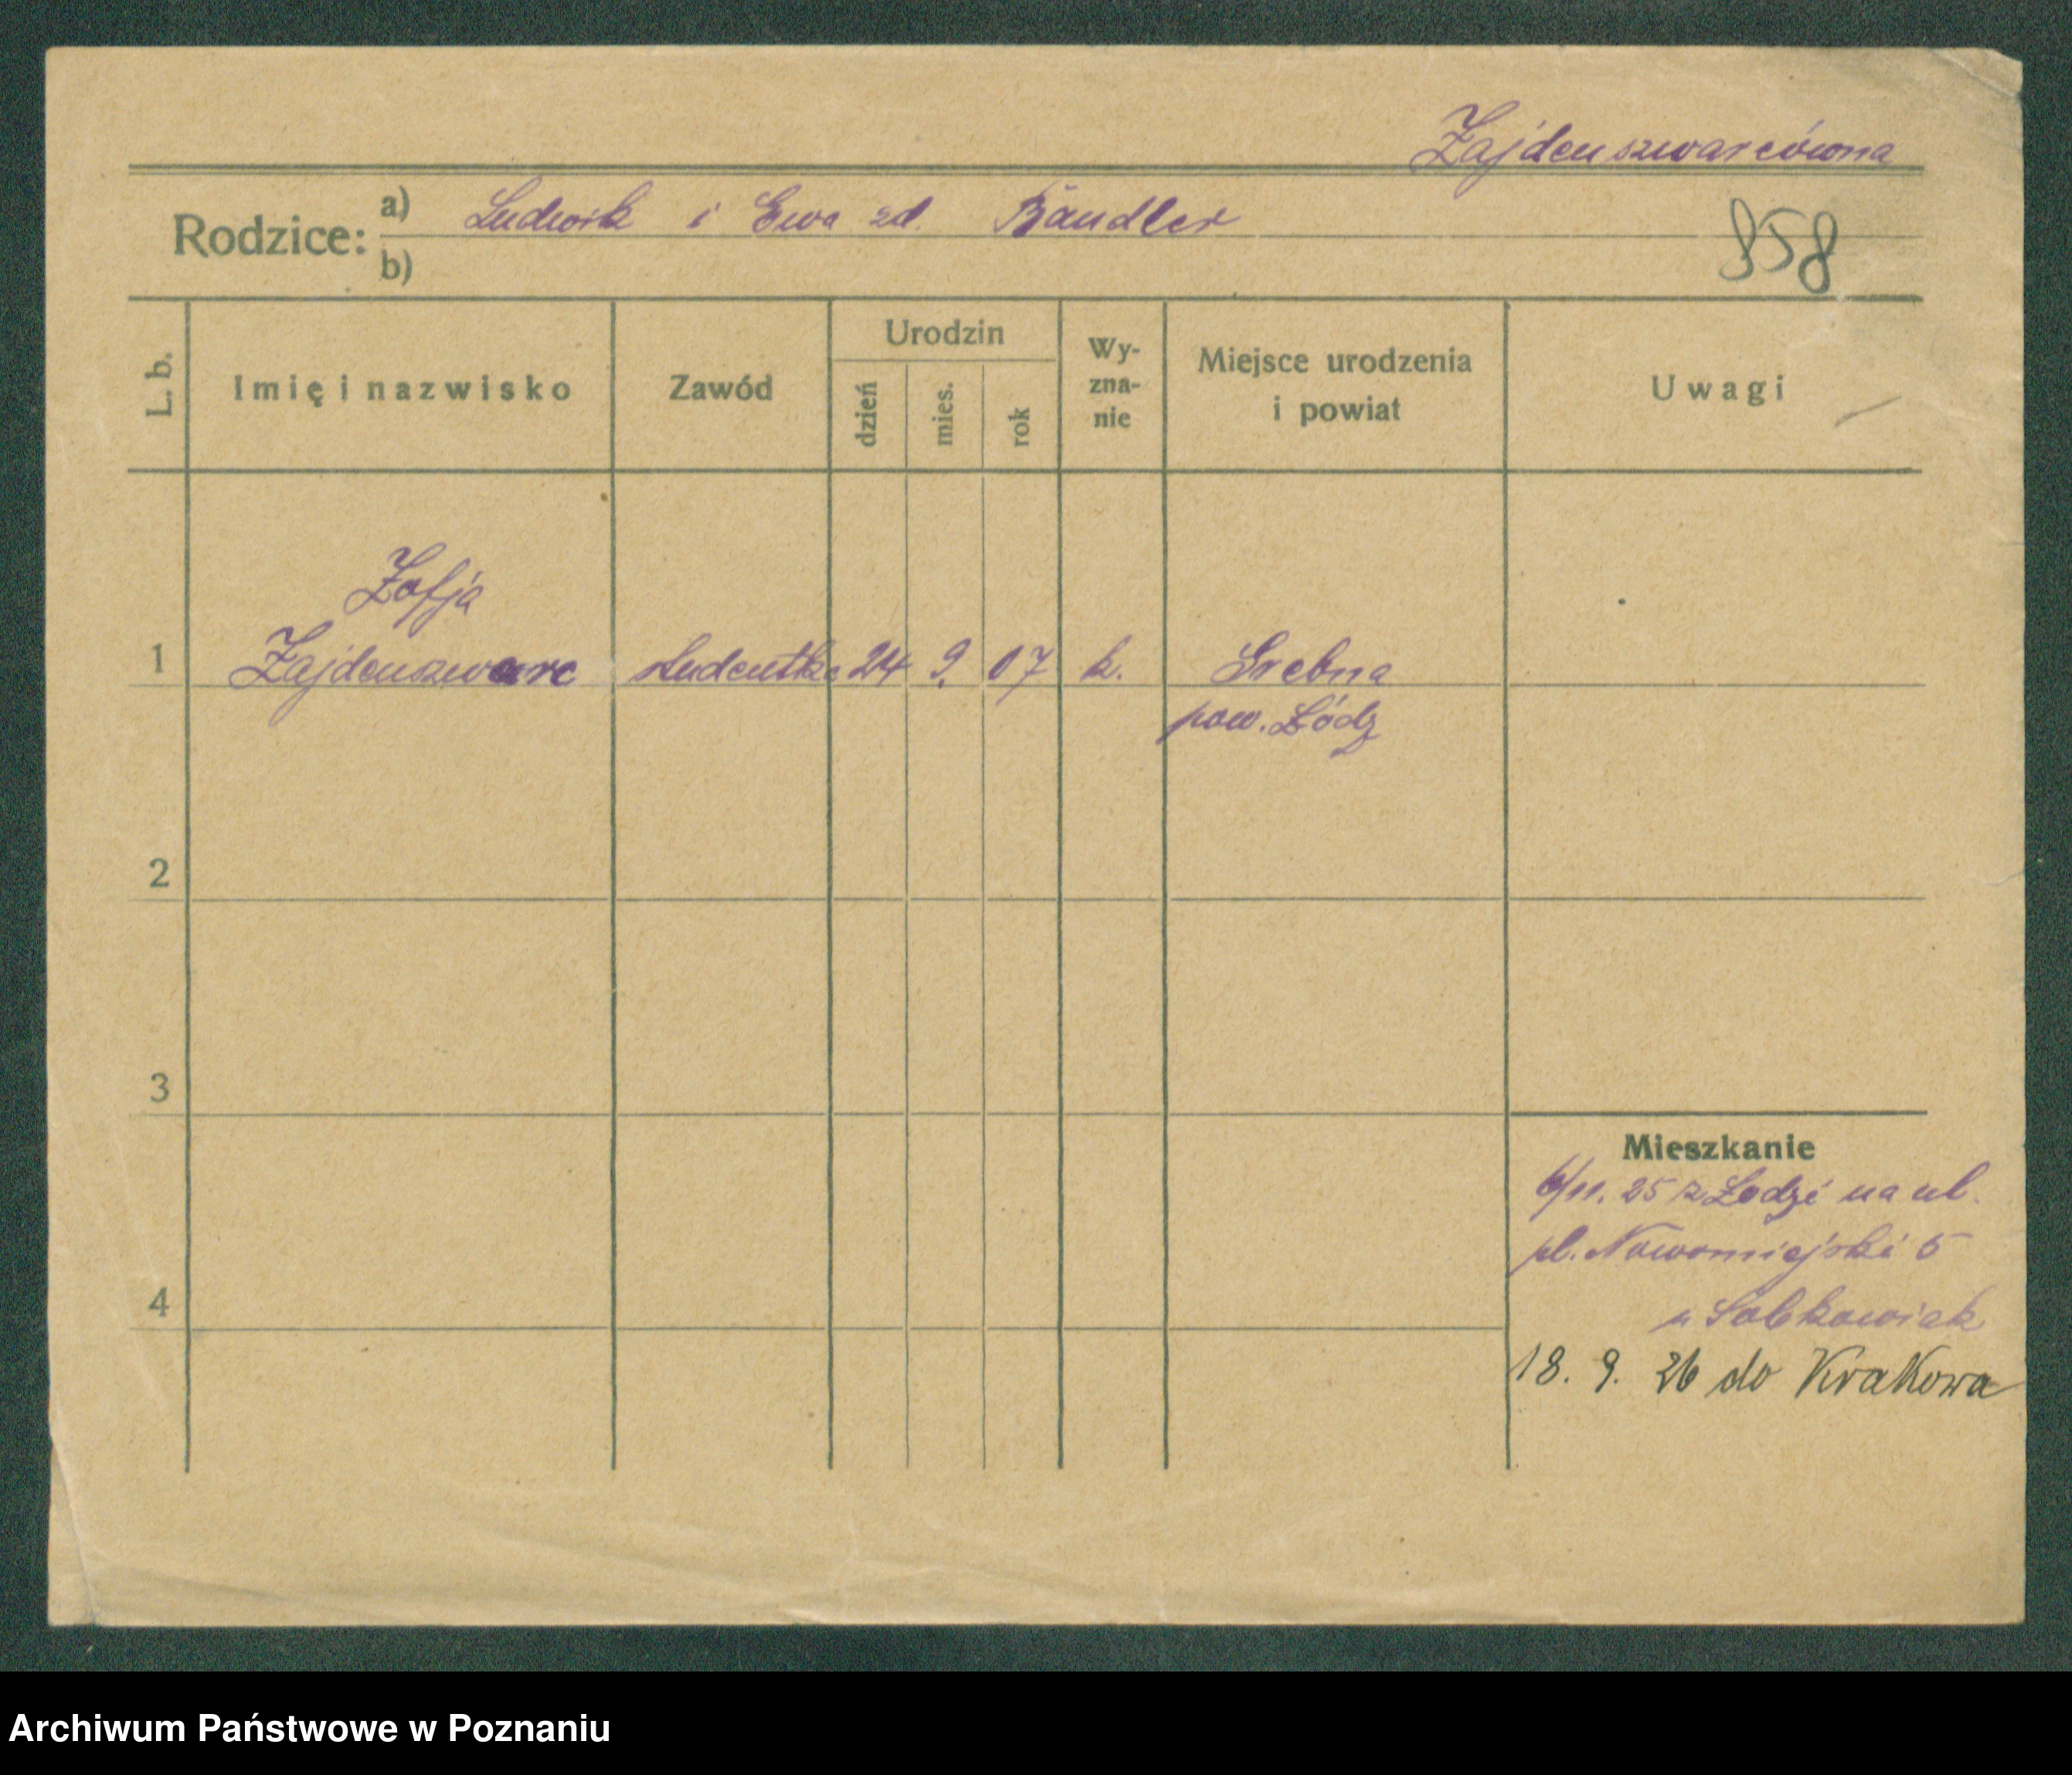 Zajdenszwarcówna
Rodzice: a) Ludwik i Ewa zd. Bändler
b)
858
L. b.
Imię i nazwisko
Zawód
Urodzin
dzień
mies.
rok
Wy-
zna-
nie
Miejsce urodzenia
i powiat
Uwagi
Zofja
1 Zajdenszwarc studentka 24 9. 07 k. Srebna
pow. Łódź
2
3
4
Mieszkanie
6/11. 25 z Łodzi na ul.
pl. Nowomiejski 5
u Sobkowiak
18. 9. 26 do Krakowa
Archiwum Państwowe w Poznaniu